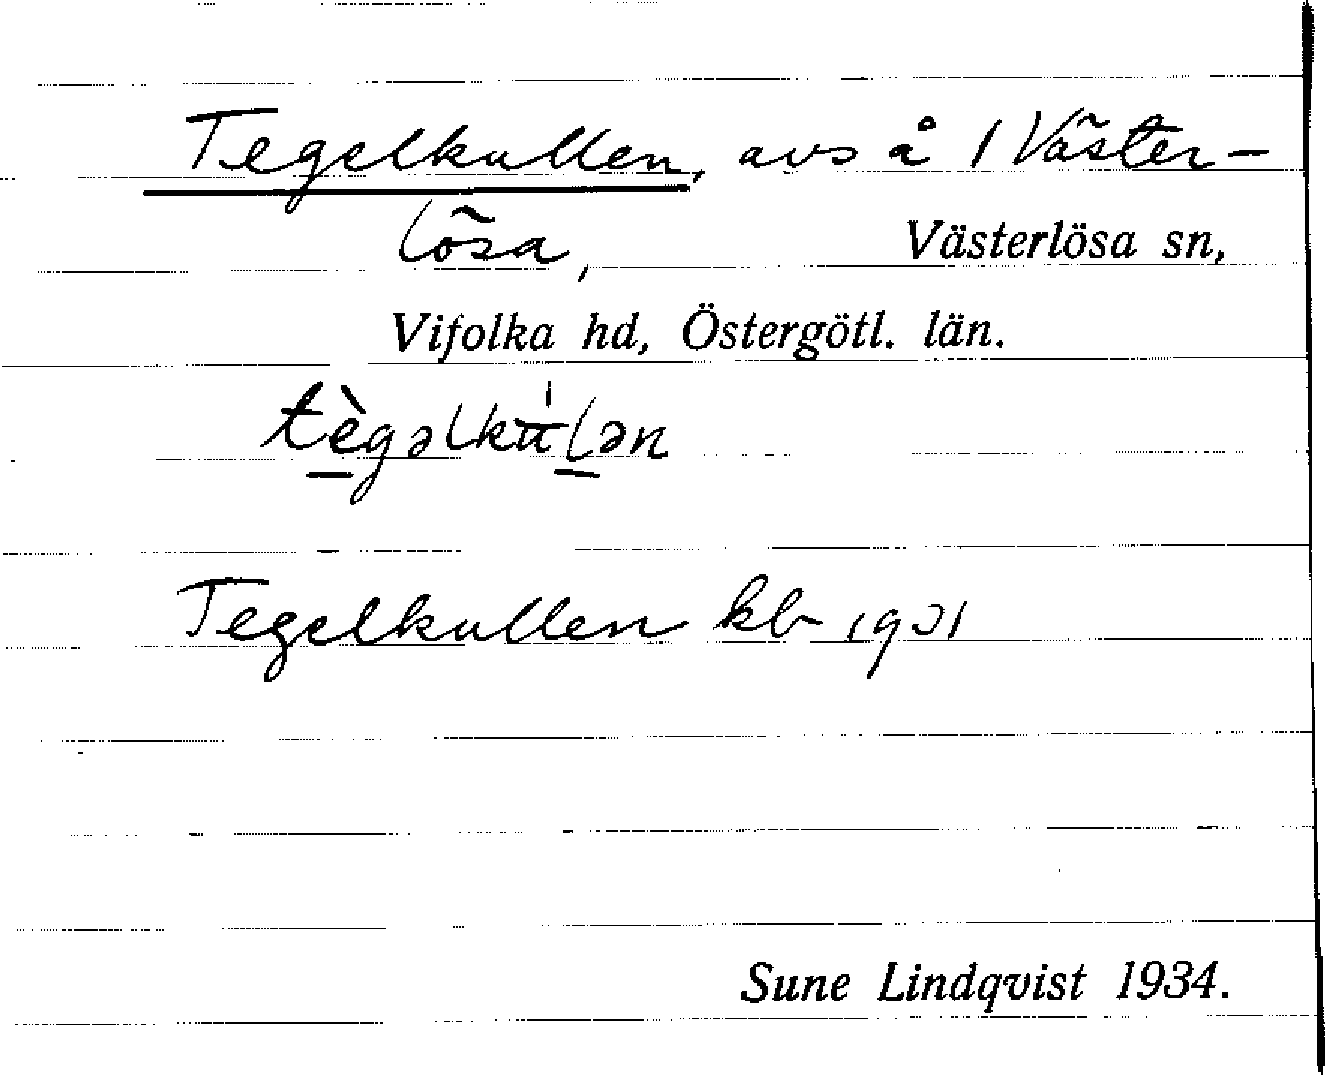 Tegelkullen, avs å 1 Väster-
lösa, Västerlösa sn,
Vifolka hd, Östergötl. län.
tègəlku̍lən
Tegelkullen kb 1931
Sune Lindqvist 1934.